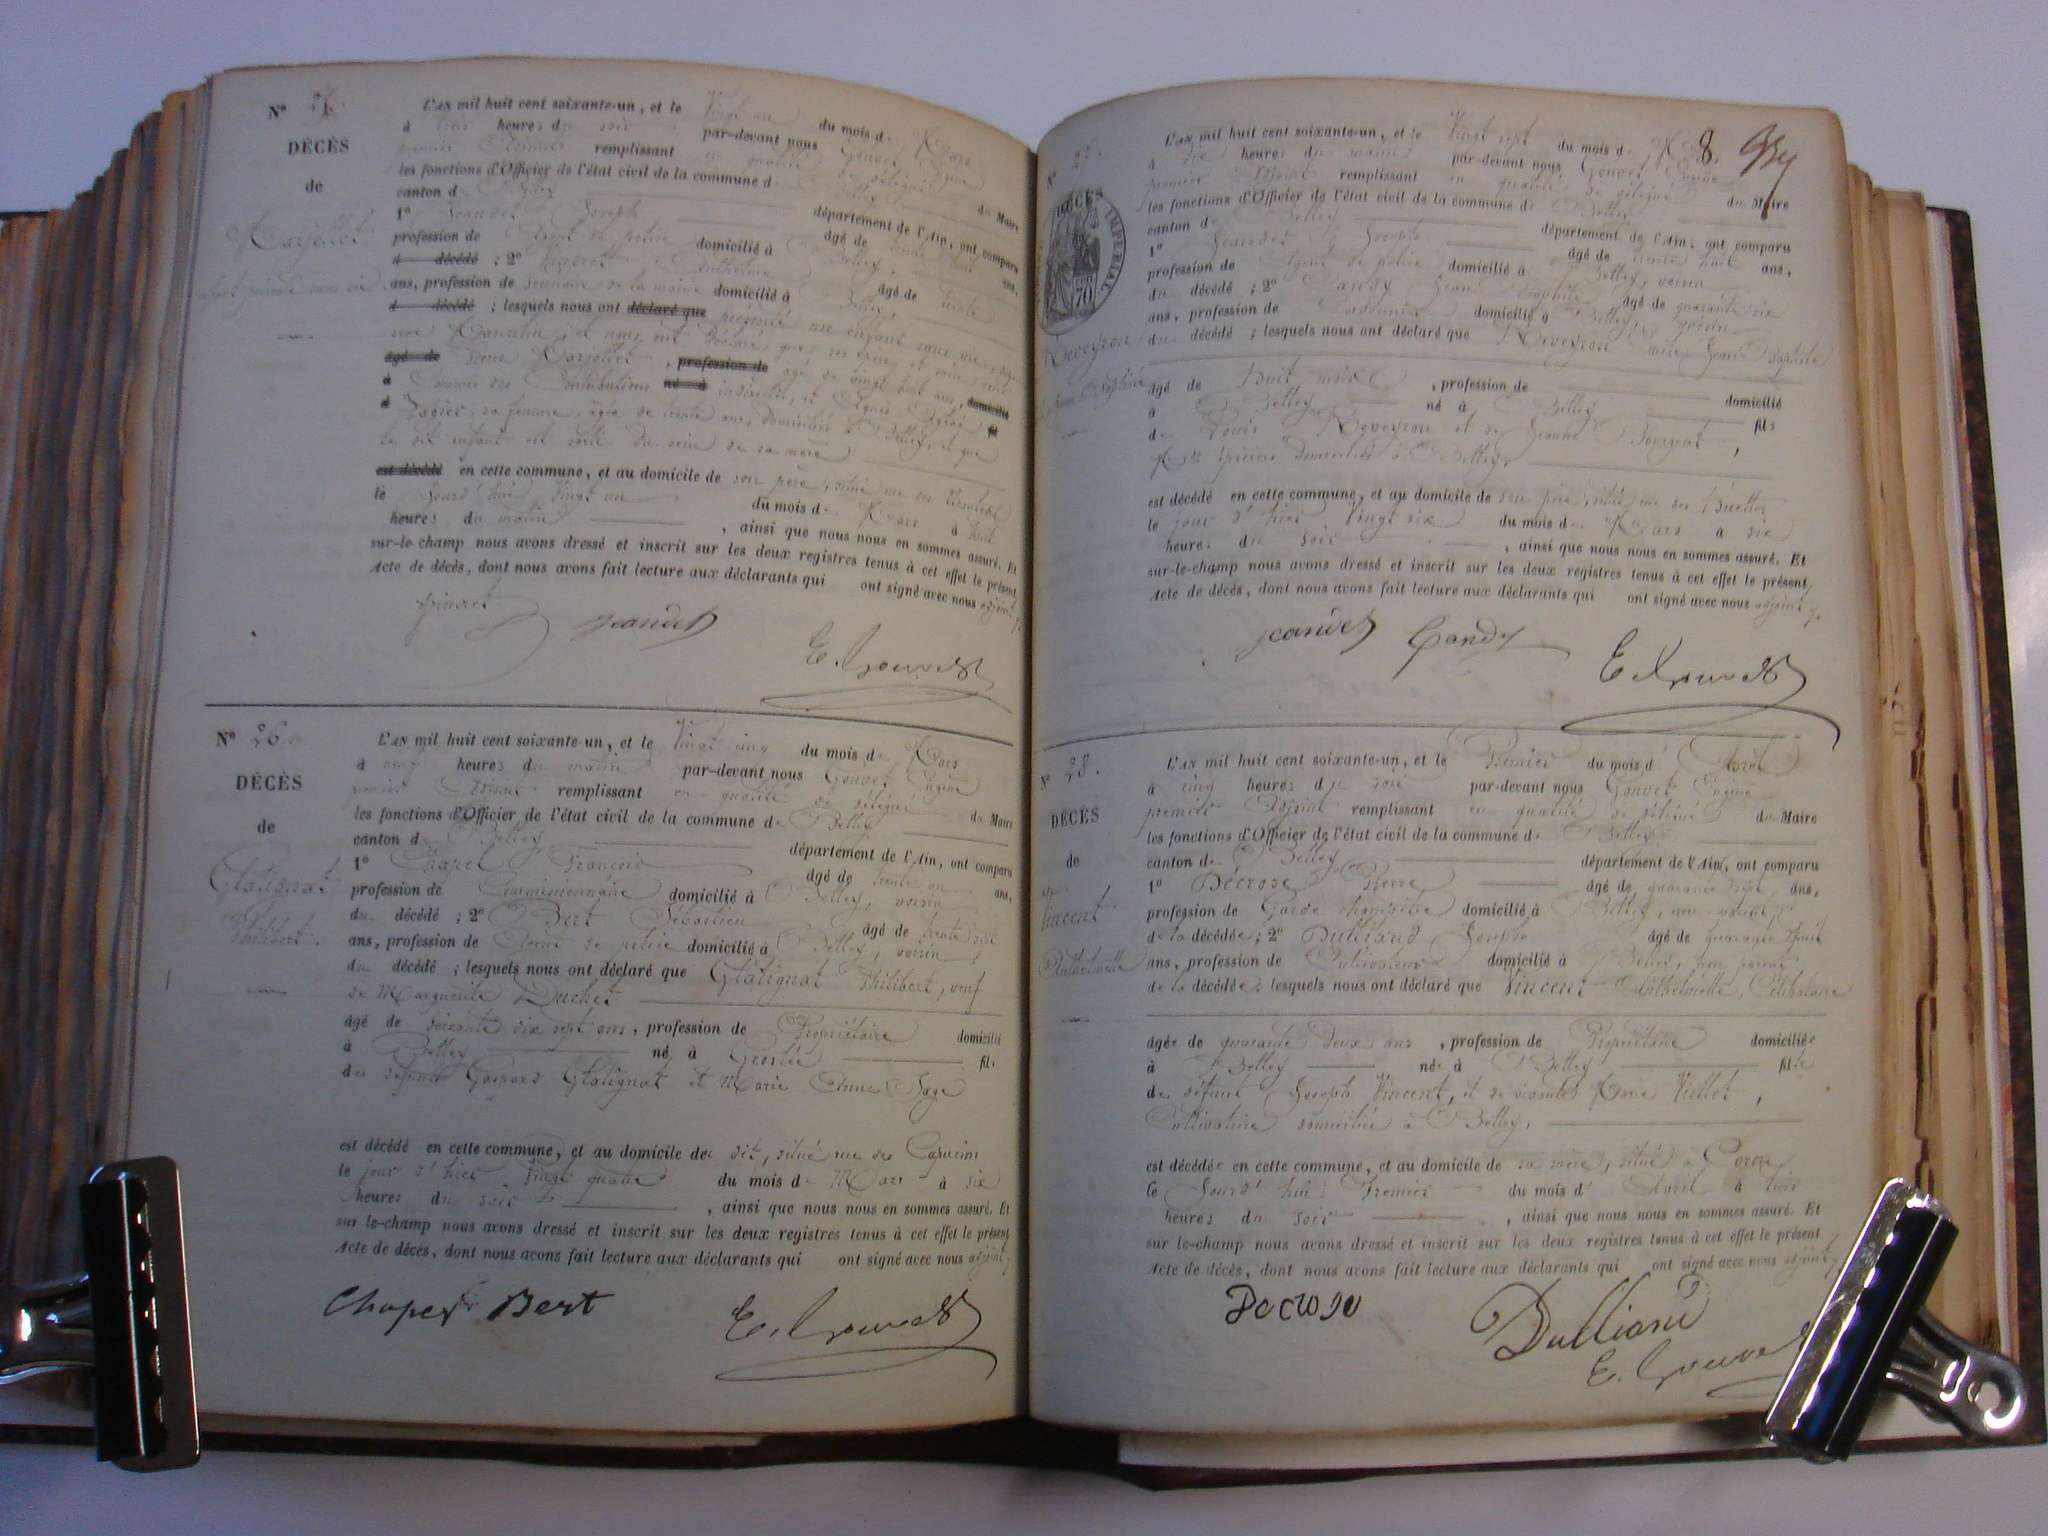 N°
DÉCÈS
de
Marjollet
enfant présenté sans vie
L'AN mil huit cent soixante-un, et le Vingt un du mois de Mars
à trois heures du soir par-devant nous Gouvet Eugène
premier Adjoint remplissant en qualité de délégué du Maire
les fonctions d'Officier de l'état civil de la commune de Belley
canton de Belley département de l'Ain, ont comparu
1° Jeandet Joseph âgé de trente huit ans,
profession de Agent de police domicilié à Belley,
d décédé ; 2° Anthelme âgé de trente
ans, profession de Secrétaire de la mairie domicilié à Belley,
d décédé ; lesquels nous ont déclaré que présenté un enfant sans vie, du
sexe Masculin, et nous ont déclaré que
âgé de Marjollet, profession de âgé de vingt huit ans, domicilié
à Commis des Contributions né à indirectes, et Aglaé
sa femme, âgée de trente ans, domiciliés à Belley, et que
le dit enfant est sorti du sein de sa mère
est décédé en cette commune, et au domicile de son père, situé rue
le Jourd'hui vingt un du mois de Mars à huit
heures du matin , ainsi que nous nous en sommes assuré. Et
sur-le-champ nous avons dressé et inscrit sur les deux registres tenus à cet effet le présent
Acte de décès, dont nous avons fait lecture aux déclarants qui ont signé avec nous adjoint
Jeandet
E. Gouvet
N° 26.
DÉCÈS
de
Glatignat
Philibert.
L'AN mil huit cent soixante-un, et le Vingt cinq du mois de Mars
à onze heures du matin par-devant nous Gouvet Eugène
premier Adjoint remplissant en qualité de délégué du Maire
les fonctions d'Officier de l'état civil de la commune de Belley
canton de Belley département de l'Ain, ont comparu
1° Chapel François âgé de trente un ans,
profession de domicilié à Belley, voisin
du décédé ; 2° Bert Sébastien âgé de trente
ans, profession de Agent de police domicilié à Belley, voisin
du décédé ; lesquels nous ont déclaré que Glatignat Philibert, veuf
de Marguerite Duchet
âgé de soixante dix sept ans, profession de Propriétaire domicilié
à Belley né à Groslée fils
des défunts Gaspard Glatignat et Marie Anne Sage
est décédé en cette commune, et au domicile de dit, situé rue des Capucins
le jour d'hier Vingt quatre du mois de Mars à six
heures du soir , ainsi que nous nous en sommes assuré. Et
sur le-champ nous avons dressé et inscrit sur les deux registres tenus à cet effet le présent
Acte de décès, dont nous avons fait lecture aux déclarants qui ont signé avec nous adjoint
Chapel Bert
E. Gouvet
8
N°
DÉCÈS
IMPERIAL
70
Neveyron
Jean Baptiste
L'AN mil huit cent soixante-un, et le Vingt sept du mois de Mars
à dix heures du matin par-devant nous Gouvet Eugène
premier Adjoint remplissant en qualité de délégué du Maire
les fonctions d'Officier de l'état civil de la commune de Belley
canton de Belley département de l'Ain, ont comparu
1° Jeandet Joseph âgé de trente huit ans,
profession de Agent de police domicilié à Belley, voisin
du décédé ; 2° Candy Jean Baptiste âgé de quarante six
ans, profession de Cordonnier domicilié à Belley, voisin
du décédé ; lesquels nous ont déclaré que Neveyron Jean Baptiste
âgé de Huit mois , profession de domicilié
à Belley né à Belley fils
de Louis Neveyron et de Jeanne Bourgeat,
domiciliés à Belley,
est décédé en cette commune, et au domicile de son père, situé rue des
le jour d'hier Vingt six du mois de Mars à six
heures du soir , ainsi que nous nous en sommes assuré. Et
sur-le-champ nous avons dressé et inscrit sur les deux registres tenus à cet effet le présent
Acte de décès, dont nous avons fait lecture aux déclarants qui ont signé avec nous adjoint
Jeandet Candy
E. Gouvet
N° 28.
DÉCÈS
de
Vincent
Anthelmette
L'AN mil huit cent soixante-un, et le Premier du mois d'Avril
à cinq heures du soir par-devant nous Gouvet Eugène
premier Adjoint remplissant en qualité de délégué du Maire
les fonctions d'Officier de l'état civil de la commune de Belley
canton de Belley département de l'Ain, ont comparu
1° Décrose Pierre âgé de quarante ans,
profession de Garde champêtre domicilié à Belley, non parent
de la décédée ; 2° Dulliand Joseph âgé de quarante huit
ans, profession de Cultivateur domicilié à Belley, non parent
de la décédée ; lesquels nous ont déclaré que Vincent Anthelmette, Célibataire
âgée de quarante deux ans , profession de Propriétaire domiciliée
à Belley née à Belley fille
de défunt Joseph Vincent, et de vivante Marie Viollet,
Cultivatrice domiciliée à Belley,
est décédée en cette commune, et au domicile de sa mère, situé à Coron
le Jourd'hui Premier du mois d'Avril à trois
heures du soir , ainsi que nous nous en sommes assuré. Et
sur le-champ nous avons dressé et inscrit sur les deux registres tenus à cet effet le présent
Acte de décès, dont nous avons fait lecture aux déclarants qui ont signé avec nous adjoint
Decrose
Dulliand
E. Gouvet